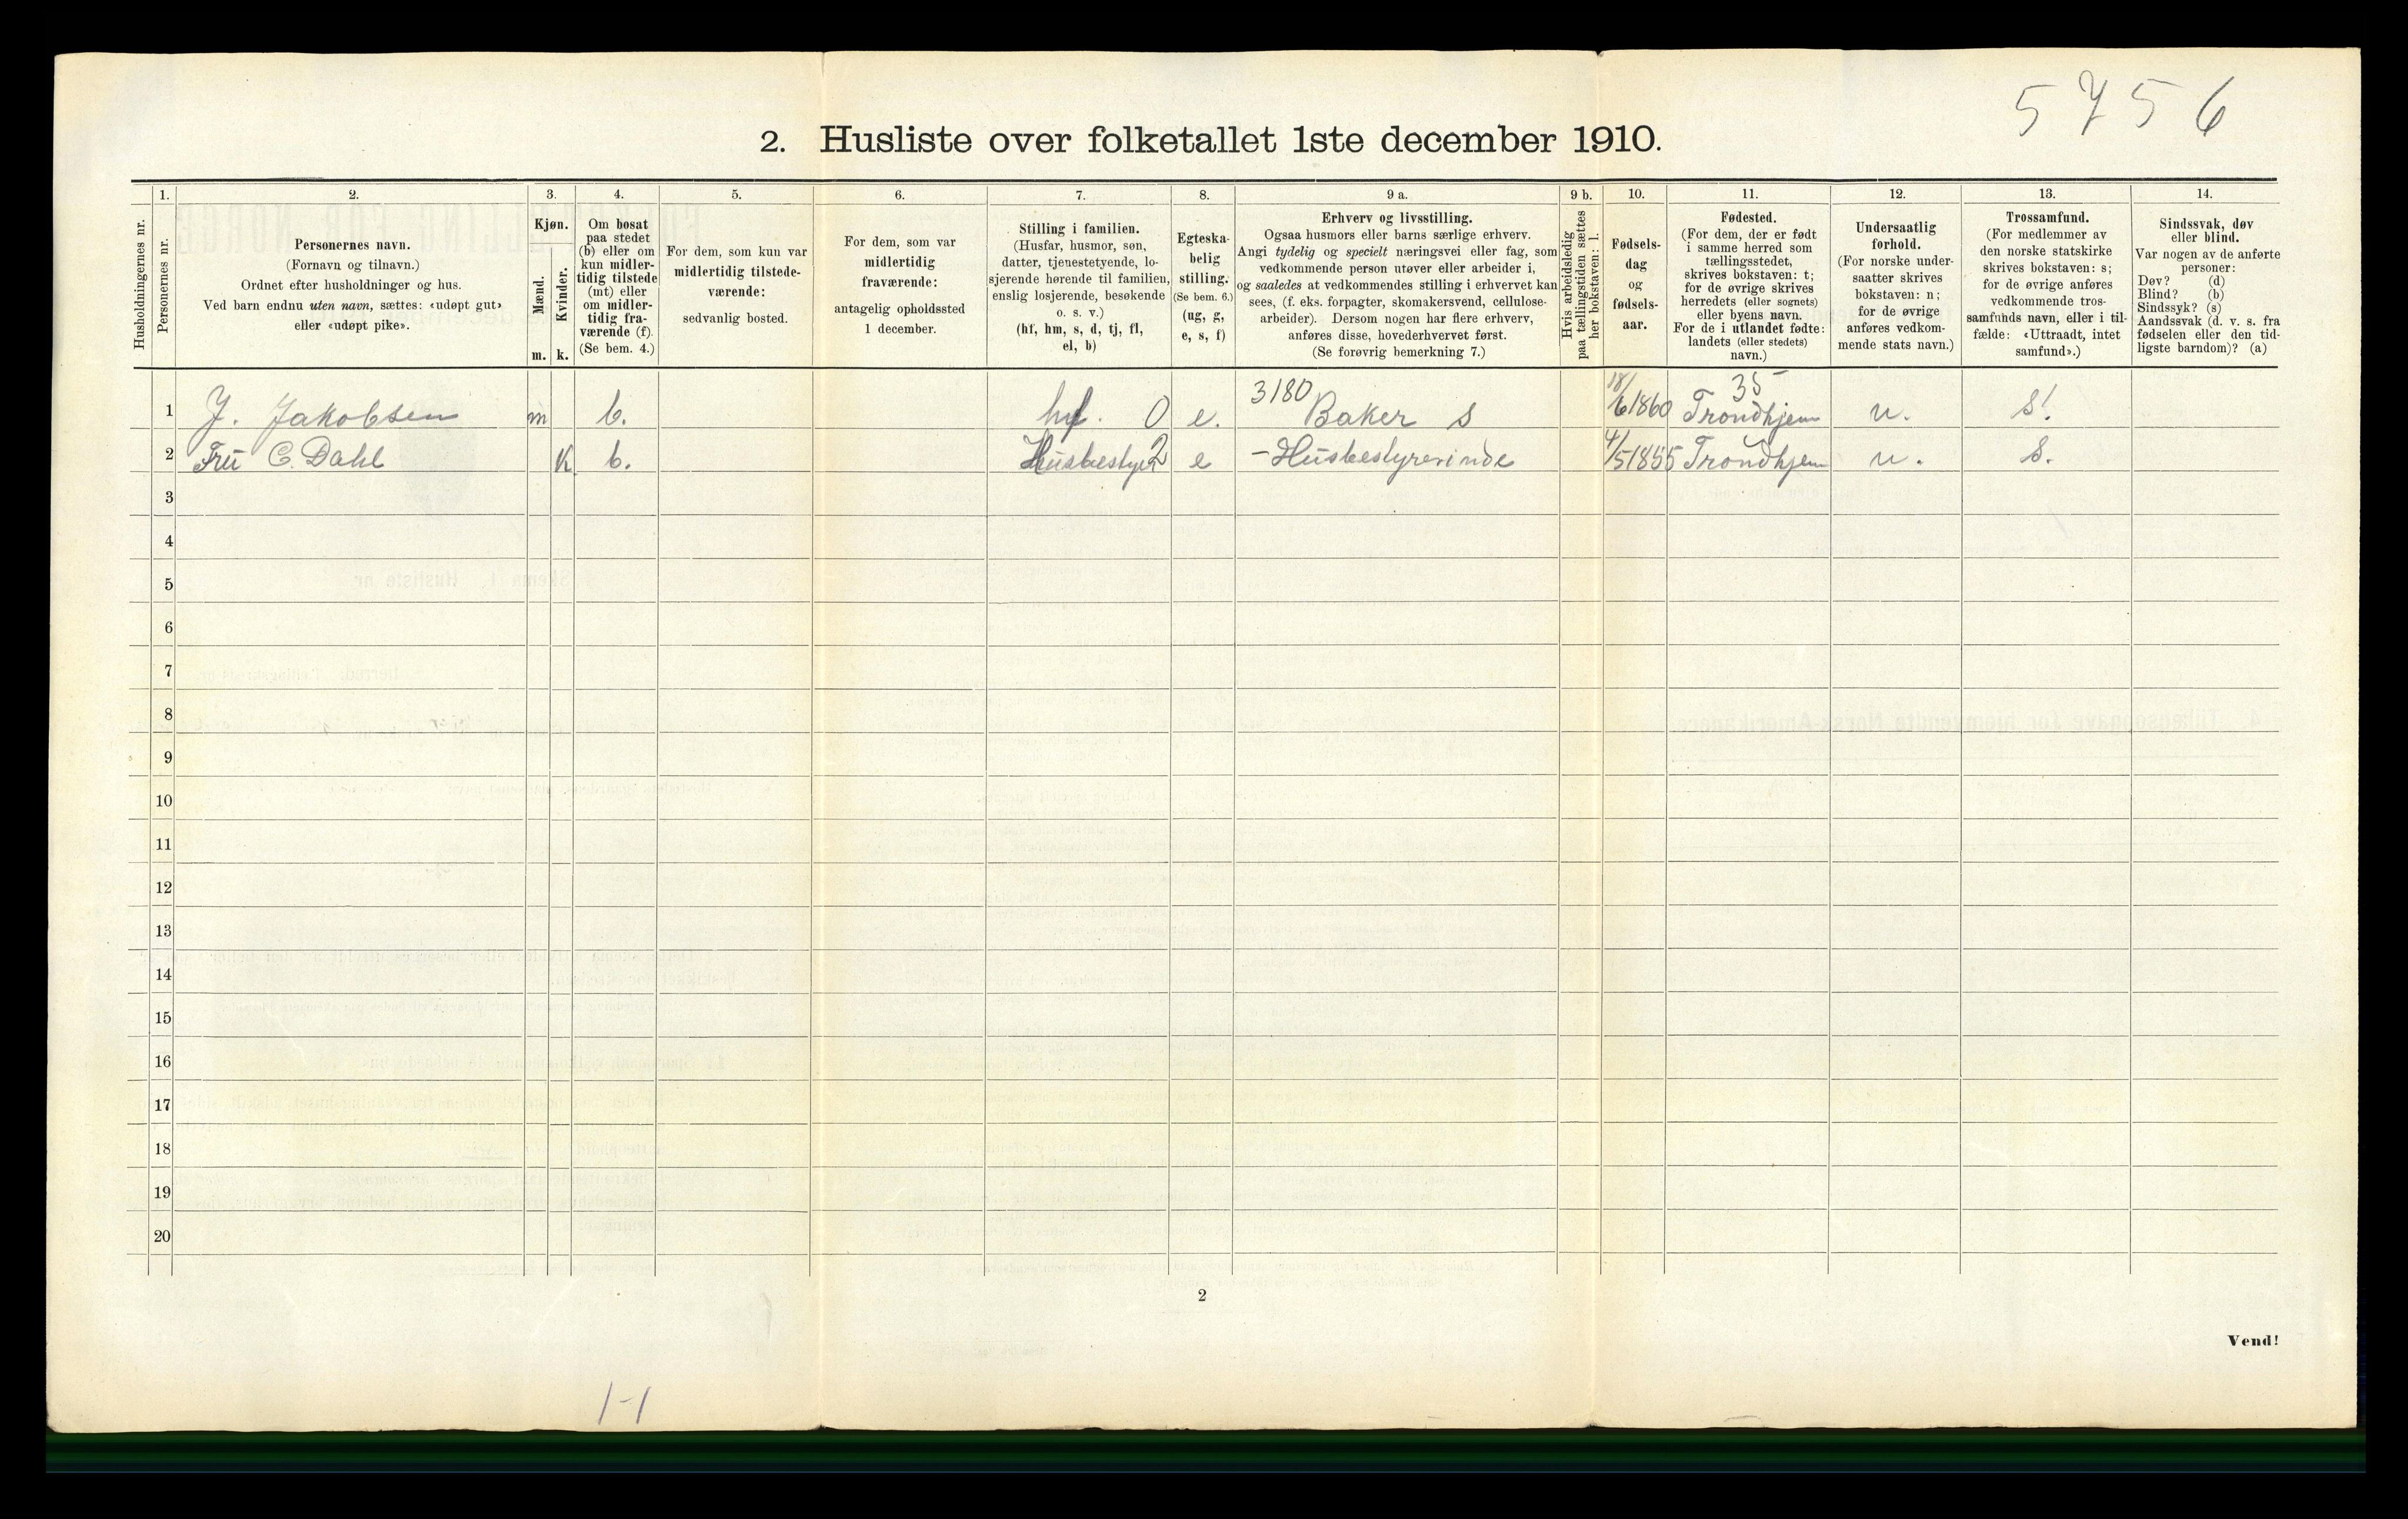 5756
2. Husliste over folketallet 1ste december 1910.
Husholdningernes nr.
1.
Personernes nr.
2.
Personernes navn.
(Fornavn og tilnavn.)
Ordnet efter husholdninger og hus.
Ved barn endnu uten navn, sættes: «udøpt gut»
eller «udøpt pike».
3.
Kjøn.
Mænd.
Kvinder.
m. k.
4.
Om bosat
paa stedet
(b) eller om
kun midler-
tidig tilstede
(mt) eller
om midler-
tidig fra-
værende (f).
(Se bem. 4.)
5.
For dem, som kun var
midlertidig tilstede-
værende:
sedvanlig bosted.
6.
For dem, som var
midlertidig
fraværende:
antagelig opholdssted
1 december.
7.
Stilling i familien.
(Husfar, husmor, søn,
datter, tjenestetyende, lo-
sjerende hørende til familien,
enslig losjerende, besøkende
o. s. v.)
(hf, hm, s, d, tj, fl,
el, b)
8.
Egteska-
belig
stilling.
(Se bem. 6.)
(ug, g,
e, s, f)
9 a.
Erhverv og livsstilling.
Ogsaa husmors eller barns særlige erhverv.
Angi tydelig og specielt næringsvei eller fag, som
vedkommende person utøver eller arbeider i,
og saaledes at vedkommendes stilling i erhvervet kan
sees, (f. eks. forpagter, skomakersvend, cellulose-
arbeider). Dersom nogen har flere erhverv,
anføres disse, hovederhvervet først.
(Se forøvrig bemerkning 7.)
9 b.
Hvis arbeidsledig
paa tællingstiden sættes
her bokstaven: l.
10.
Fødsels-
dag
og
fødsels-
aar.
11.
Fødested.
(For dem, der er født
i samme herred som
tællingsstedet,
skrives bokstaven: t;
for de øvrige skrives
herredets (eller sognets)
eller byens navn.
For de i utlandet fødte:
landets (eller stedets)
navn.)
12.
Undersaatlig
forhold.
(For norske under-
saatter skrives
bokstaven: n;
for de øvrige
anføres vedkom-
mende stats navn.)
13.
Trossamfund.
(For medlemmer av
den norske statskirke
skrives bokstaven: s;
for de øvrige anføres
vedkommende tros-
samfunds navn, eller i til-
fælde: «Uttraadt, intet
samfund».)
14.
Sindssvak, døv
eller blind.
Var nogen av de anførte
personer:
Døv? (d)
Blind? (b)
Sindssyk? (s)
Aandssvak (d. v. s. fra
fødselen eller den tid-
ligste barndom)? (a)
3180 35
1 J. Jakobsen m b. hf. 0 e. Baker s 18/6 1860 Trondhjem n. s.
2 Frü C. Dahl k b. Husbestyr 2 e – Husbestyrerinde 4/5 1855 Trondhjem n. s.
3
4
5
6
7
8
9
10
11
12
13
14
15
16
17
18
19
20
2
Vend!
1-1